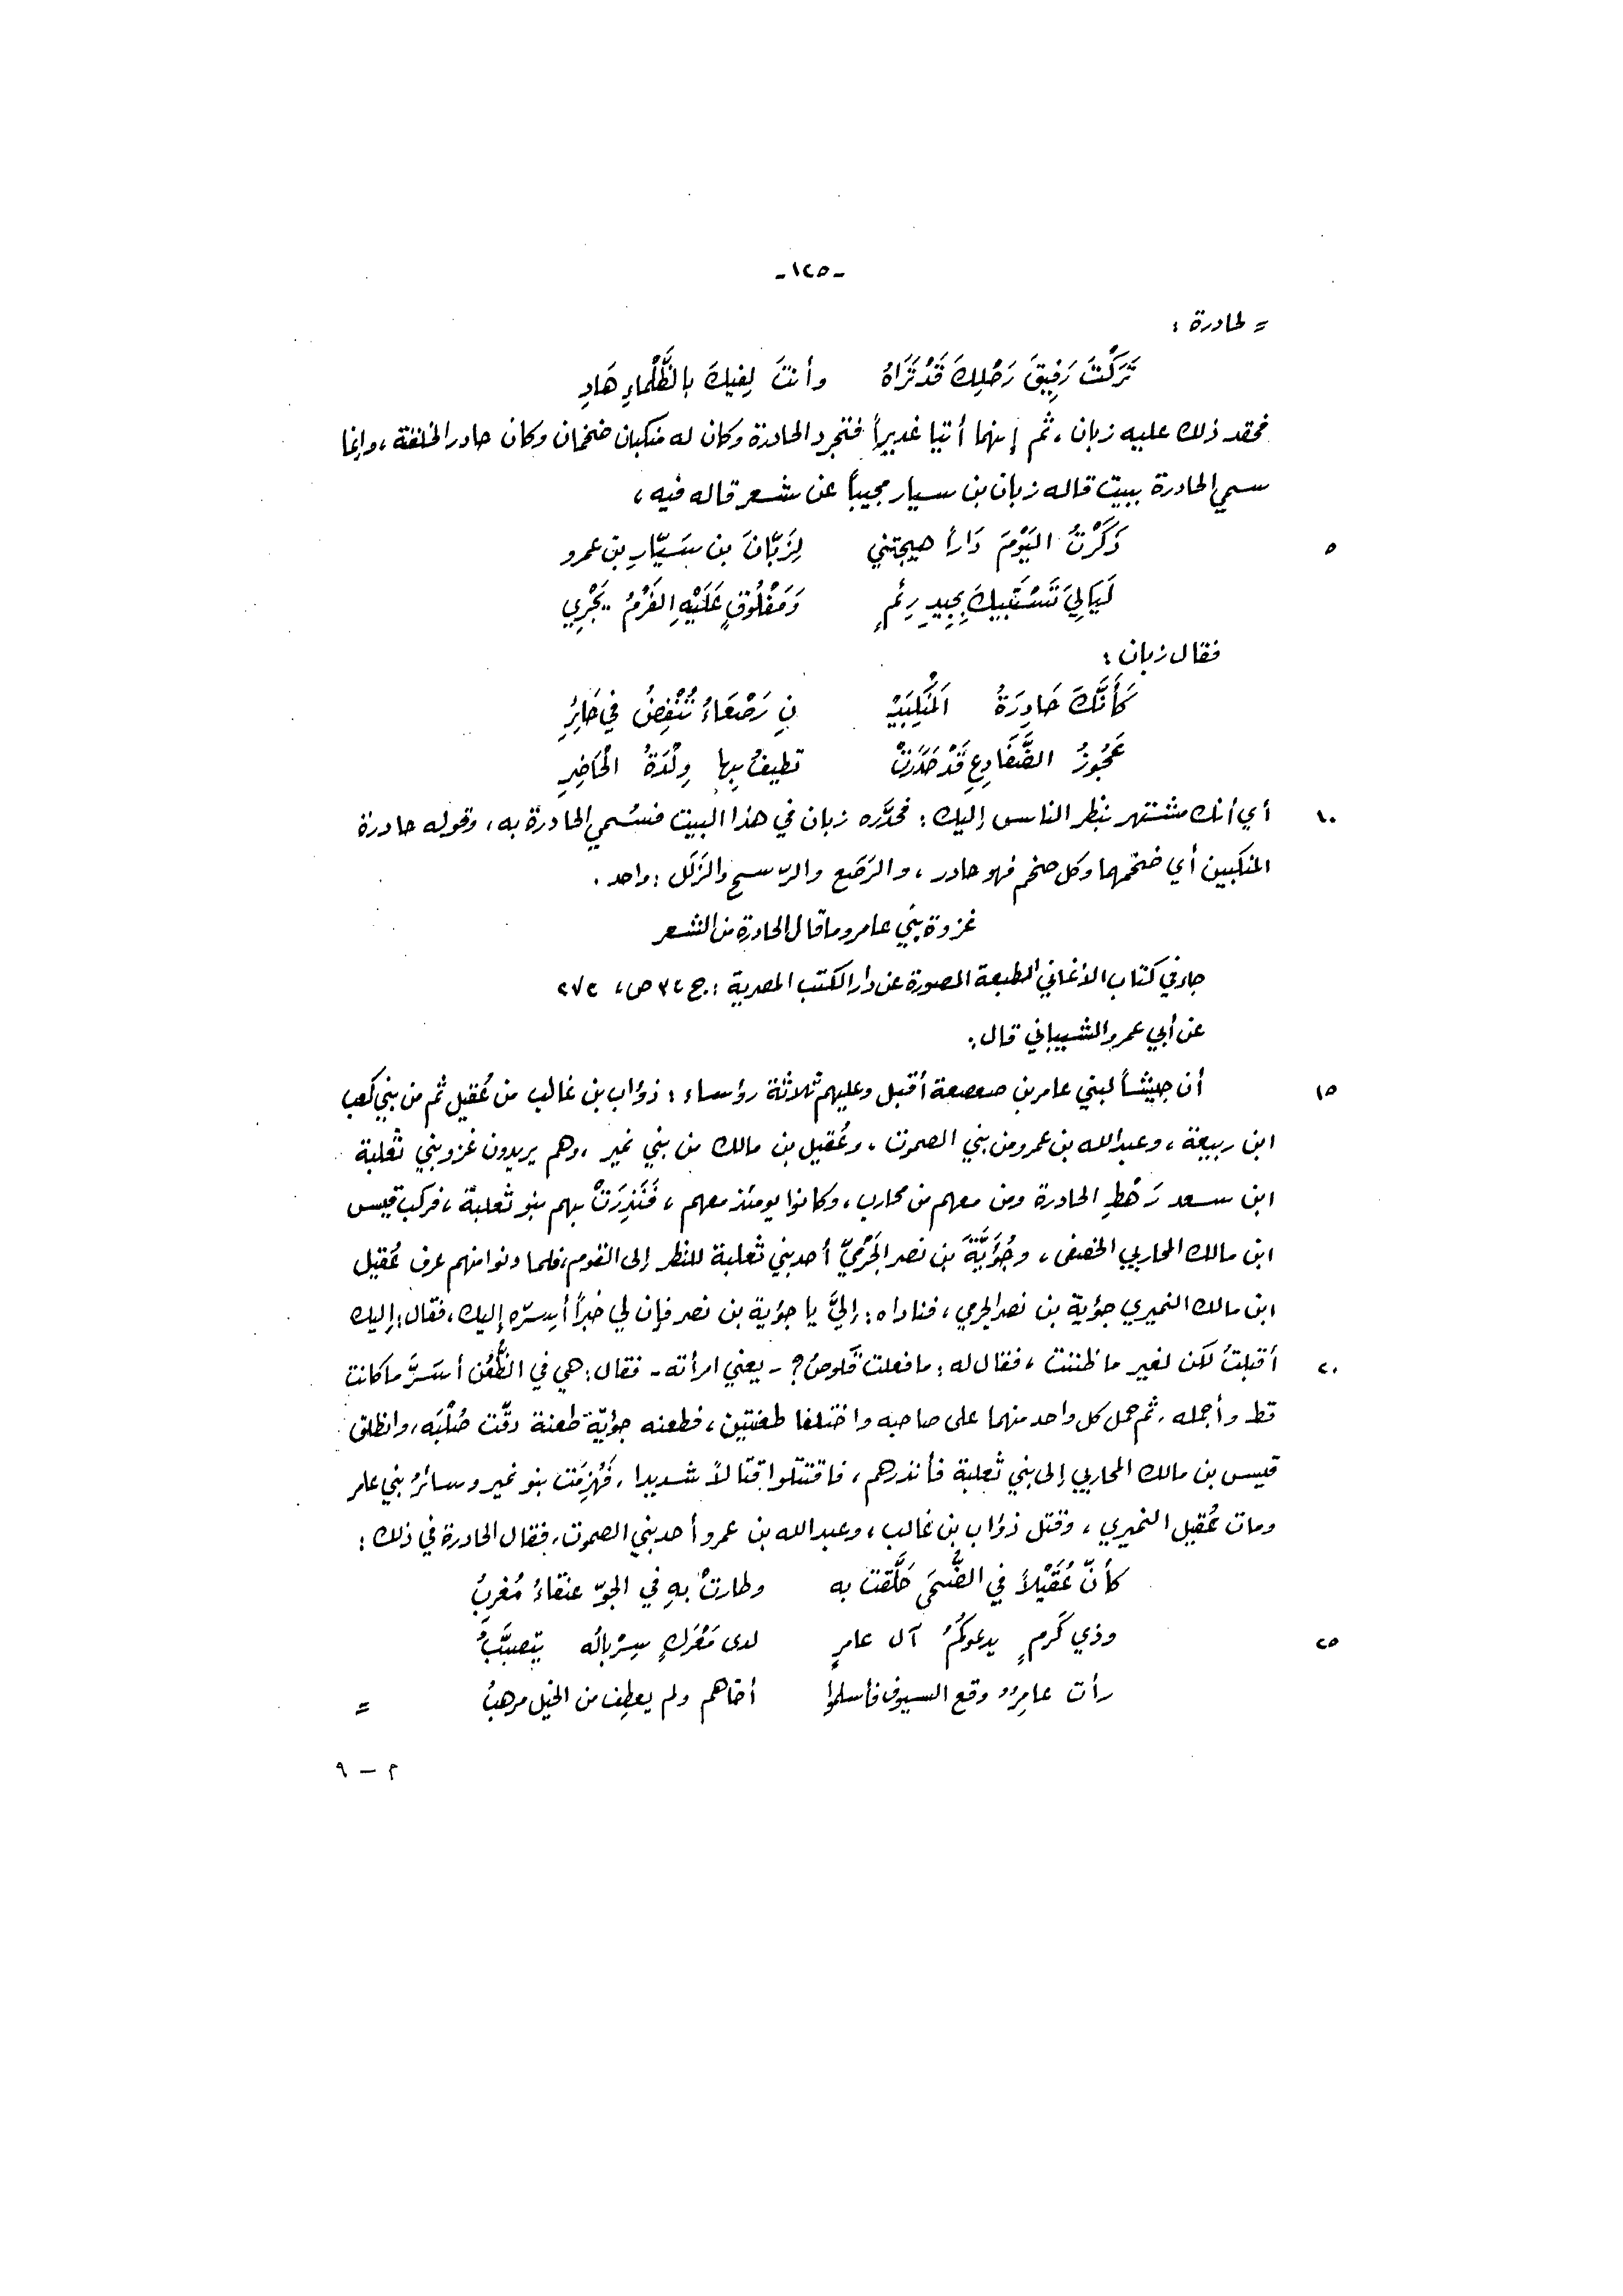 -١٢٥-
= لحادرة :
تَرَكْتَ رَفِيقَ رَحْلِكَ قَدْ تَرَاهُ وأنتَ لِفيكَ بالظَّلْماءِ هَادِ
فحقد ذلك عليه زبان، ثم إنهما أتيا غديراً فتجرد الحادرة وكان له منكبان ضخمان وكان حادر الخلقة، وإنما
سمي الحادرة ببيت قاله زبان بن سيار مجيباً عن شعر قاله فيه،
٥ ذَكَرْتُ اليَوْمَ دَاراً هيجتني لِزَبّانَ بن سَيّارِ بن عمرو
لَيَالِيَ تَسْتَبيكَ بِجِيدِ رِئمٍ وَمَفْلُوقٍ عَلَيْهِ الفَرْمُ يَجْرِي
فقال زبان :
كَأَنَّكَ حَادِرَةُ المَنْكِبَيْ نِ رَصْعَاءُ تُنْقِضُ في حَائِرِ
عَجُوزُ الضَّفَادِعِ قَدْ حَدَرَتْ تطيفُ بِها وِلْدَةُ الحَاضِرِ
١٠ أي أنك مشتهر بنظر الناس إليك: فحدَّره زبان في هذا البيت فسُمي الحادرة به، وقوله حادرة
المنكبين أي ضخمهما وكل ضخم فهو حادر، والرَصَع والرّسح والزَلَل : واحد .
غزوة بني عامر وما قال الحادرة من الشعر
جاء في كتاب الأغاني الطبعة المصورة عن دار الكتب المصرية : ج ٣ ص، ٢٧٢
عن أبي عمرو الشيباني قال:
١٥ أن جيشاً لبني عامر بن صعصعة أقبل وعليهم ثلاثة رؤساء : ذؤاب بن غالب من عُقيل ثم من بني كعب
ابن ربيعة، وعبدالله بن عمرو من بني الصموت، وعُقيل بن مالك من بني نمير، وهم يريدون غزو بني ثعلبة
ابن سعد رَهْطِ الحادرة ومن معهم من محارب، وكانوا يومئذ معهم، فَنَذِرَتْ بهم بنو ثعلبة، فركب قيس
ابن مالك المحاربي الخصفى، وجُؤَيَّةَ بن نصر الجَرْميّ أحد بني ثعلبة للنظر إلى القوم، فلما دنوا منهم عرف عُقيل
ابن مالك النميري جؤية بن نصر الجرمي، فناداه: إليَّ يا جؤية بن نصر فإن لي خبراً أسِرّه إليك، فقال: إليك
٢٠ أقبلتُ لكن لغير ما ظننت، فقال له: ما فعلت قَلوصُ؟ - يعني امرأته - فقال: هي في الظُّعُن أسَرَّ ما كانت
قط وأجمله، ثم حمل كل واحد منهما على صاحبه واختلفا طعنتين، فطعنه جؤيّة طعنة دقّت صُلْبَه، وانطلق
قيس بن مالك المحاربي إلى بني ثعلبة فأنذرهم، فاقتتلوا قتالاً شديدا، فَهُزِمَت بنو نمير وسائرُ بني عامر
ومات عُقيل النميري، وقتل ذؤاب بن غالب، وعبدالله بن عمرو أحد بني الصموت، فقال الحادرة في ذلك :
كأنّ عُقَيْلاً في الضُّحَى حَلَّقت به وطارتْ بهِ في الجوّ عنقاءُ مُغرِبُ
٢٥ وذي كَرمٍ يدعوكمُ آل عامرٍ لدى مَعْرَكٍ سِرْبالُه يتصبَّبُ
رأت عامرٌ وقع السيوف فأسلموا أخاهم ولم يعطِف من الخيل مرهبُ =
م - ٩